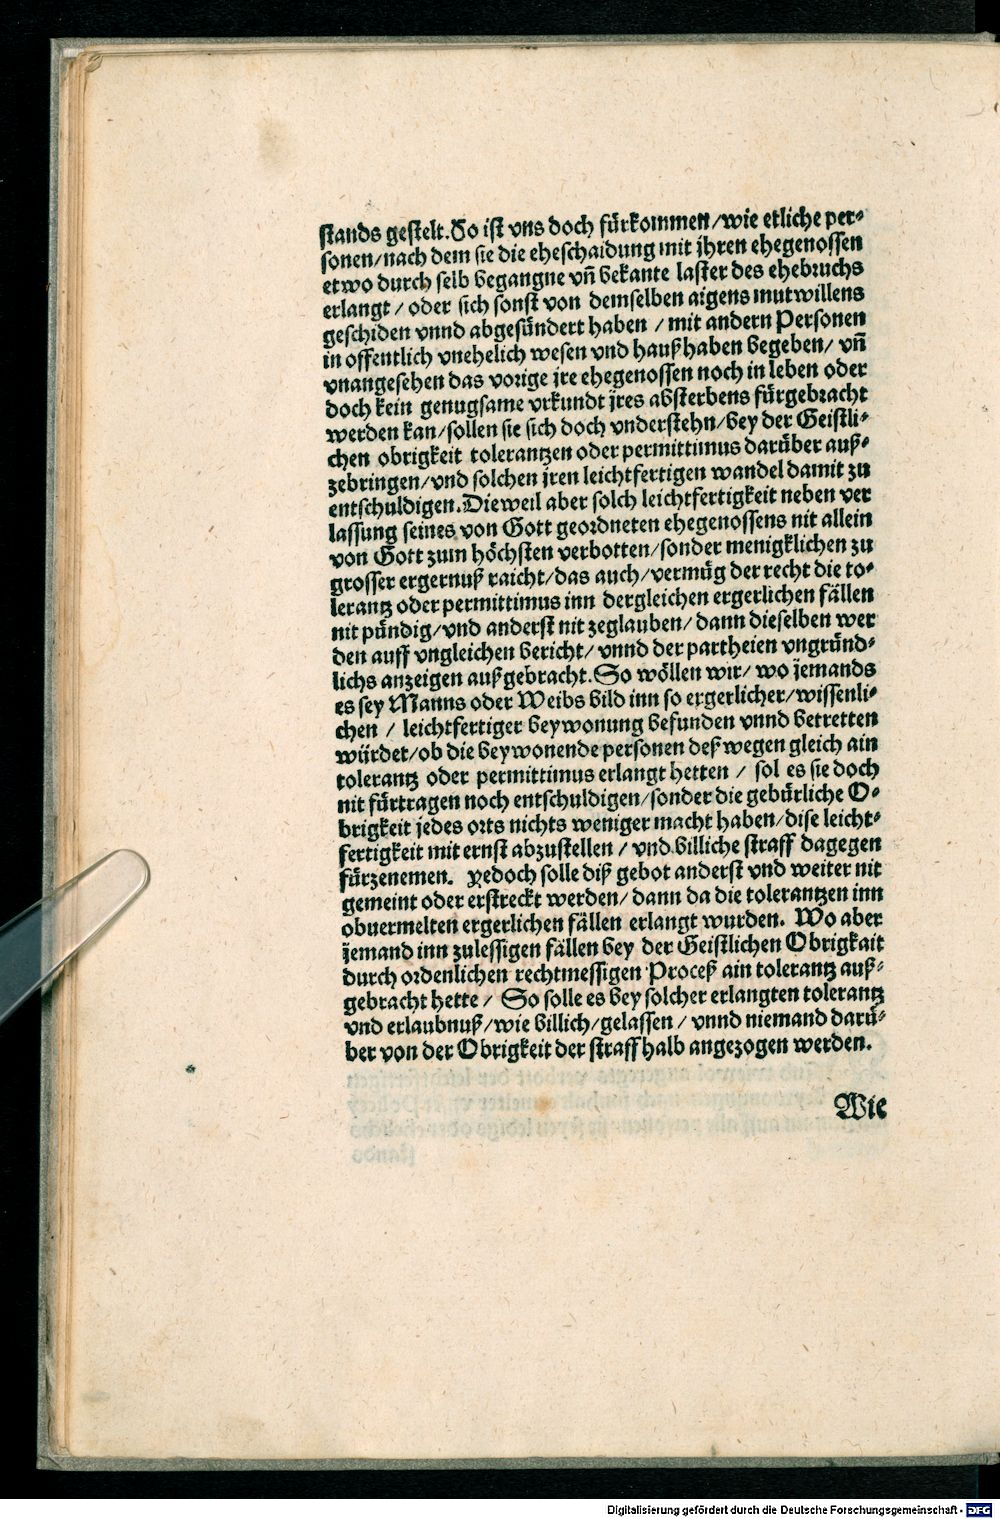 stands gestelt. So ist vns doch fürkommen/wie etliche per-
sonen/nach dem sie die eheschaidung mit jhren ehegenossen
etwo durch selb begangne vñ bekante laster des ehebruchs
erlangt / oder sich sonst von demselben aigens mutwillens
geschiden vnnd abgesündert haben / mit andern Personen
in offentlich vnehelich wesen vnd haußhaben begeben/ vñ
vnangesehen das vorige jre ehegenossen noch in leben oder
doch kein genugsame vrkundt jres absterbens fürgebracht
werden kan/sollen sie sich doch vnderstehn/bey der Geistli-
chen obrigkeit tolerantzen oder permittimus darüber auß-
zebringen/vnd solchen jren leichtfertigen wandel damit zu
entschuldigen. Dieweil aber solch leichtfertigkeit neben ver
lassung seines von Gott geordneten ehegenossens nit allein
von Gott zum höchsten verbotten/sonder menigklichen zu
grosser ergernuß raicht/das auch/vermüg der recht die to-
lerantz oder permittimus inn dergleichen ergerlichen fällen
nit pündig/vnd anderst nit zeglauben/dann dieselben wer
den auff vngleichen bericht/ vnnd der partheien vngründ-
lichs anzeigen außgebracht. So wöllen wir/ wo jemands
es sey Manns oder Weibs bild inn so ergerlicher/wissenli-
chen / leichtfertiger beywonung befunden vnnd betretten
würdet/ob die beywonende personen deßwegen gleich ain
tolerantz oder permittimus erlangt hetten / sol es sie doch
nit fürtragen noch entschuldigen/sonder die gebürliche O-
brigkeit jedes orts nichts weniger macht haben/dise leicht-
fertigkeit mit ernst abzustellen / vnd billiche straff dagegen
fürzenemen. Yedoch solle diß gebot anderst vnd weiter nit
gemeint oder erstreckt werden/ dann da die tolerantzen inn
obuermelten ergerlichen fällen erlangt wurden. Wo aber
jemand inn zulessigen fällen bey der Geistlichen Obrigkait
durch ordenlichen rechtmessigen Proceß ain tolerantz auß-
gebracht hette / So solle es bey solcher erlangten tolerantz
vnd erlaubnuß/wie billich/gelassen / vnnd niemand darü-
ber von der Obrigkeit der straff halb angezogen werden.
Wie
Digitalisierung gefördert durch die Deutsche Forschungsgemeinschaft - DFG